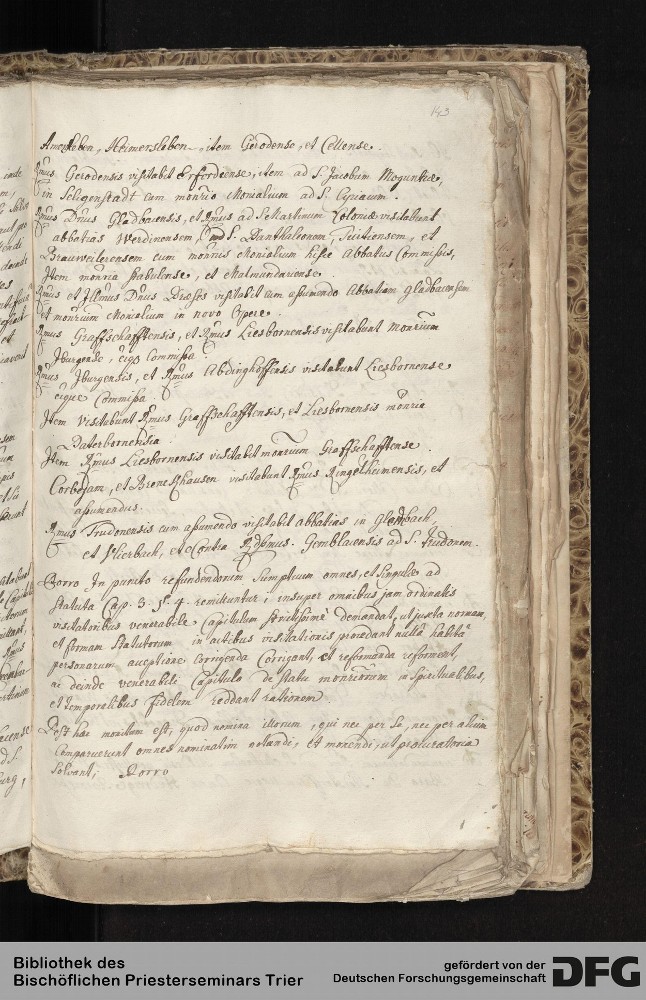 143
Amersleben, Heimersleben, item Gerodense, et Cellense.
Rmus Gerodensis visitabit Erfordiense, item ad S. Jacobum Moguntiæ,
in Seligenstadt cum monrio Monialium ad S. Cyriacum.
Rmus Dnus Gladbacensis, et Rmus ad S Martinum Coloniæ visitabunt
abbatias Werdinensem, S. Panthaleonem, Tuitiensem, et
Brauweilerensem cum monriis Monialium hisce Abbatibus Commissis,
Item monria Stabulense, et Malmundariense.
Rmus et Illmus Dnus Præses visitabit cum assumendo Abbatiam Gladbacensem
et monrium Monialium in novo Opere.
Rmus Graffschafftensis, et Rmus Liesbornensis visitabunt Monrium
Iburgense, eiq3 Commissa.
Rmus Iburgensis, et Rmus Abdinghoffensis visitabunt Liesbornense
eique Commissa.
Item visitabunt Rmus Graffschafftensis, et Liesbornensis monria
Paterbornensia.
Item Rmus Liesbornensis visitabit monrium Graffschafftense.
Corbejam, et visitabunt Rmus Ringelheimensis, et
assumendus.
Rmus Trudonensis cum assumendo visitabit abbatias in Glembach,
et Vlierbech, et Contra Rdssmus. Gemblacensis ad S. Trudonem.
Porro In puncto refundendorum Sumptuum omnes, et Singulæ ad
Statuta Cap. 3. §. 4. remittuntur; insuper omnibus jam ordinatis
visitatoribus venerabile Capitulum Strictissimè demandat, ut juxta normam,
et formam Statutorum in actibus visitationis procedant nullâ habitâ
personarum acceptione Corrigenda Corrigant, et reformanda reforment,
ac deinde venerabili Capitulo de Statu monriorum in Spiritualibus,
et temporalibus fidelem reddant rationem.
Post hæc monitum est, quod nomina illorum, qui nec per Se, nec per alium
Comparuerunt omnes nominatim notandi, et monendi, ut procuratoria
Solvant; Porro
Bibliothek des
Bischöflichen Priesterseminars Trier
gefördert von der
Deutschen Forschungsgemeinschaft
DFG